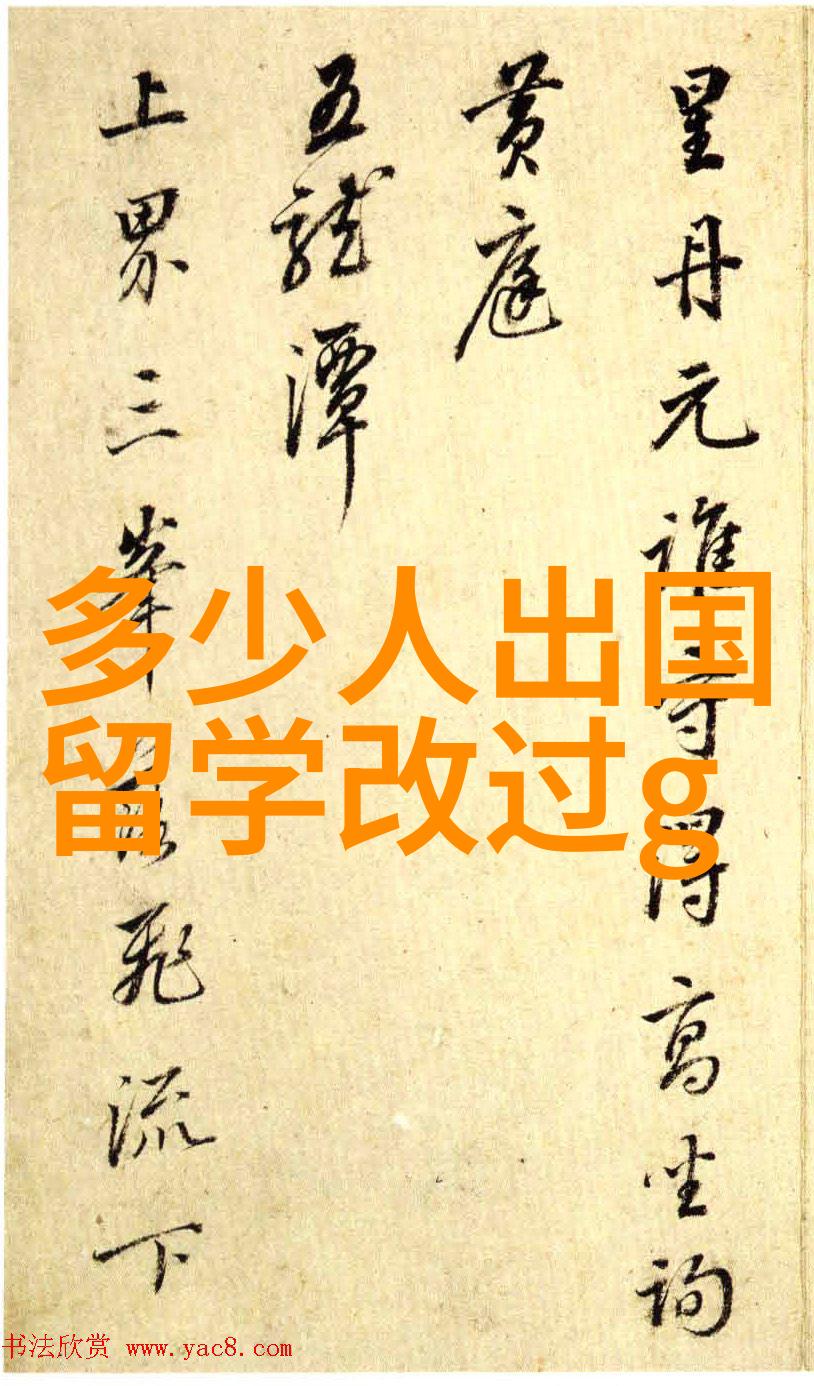 星丹元誰
得高坐詢
黄庭
五龍潭
上界三峰
飛流下
多少人出国
留学改过g
书法欣赏 www.yac8.com